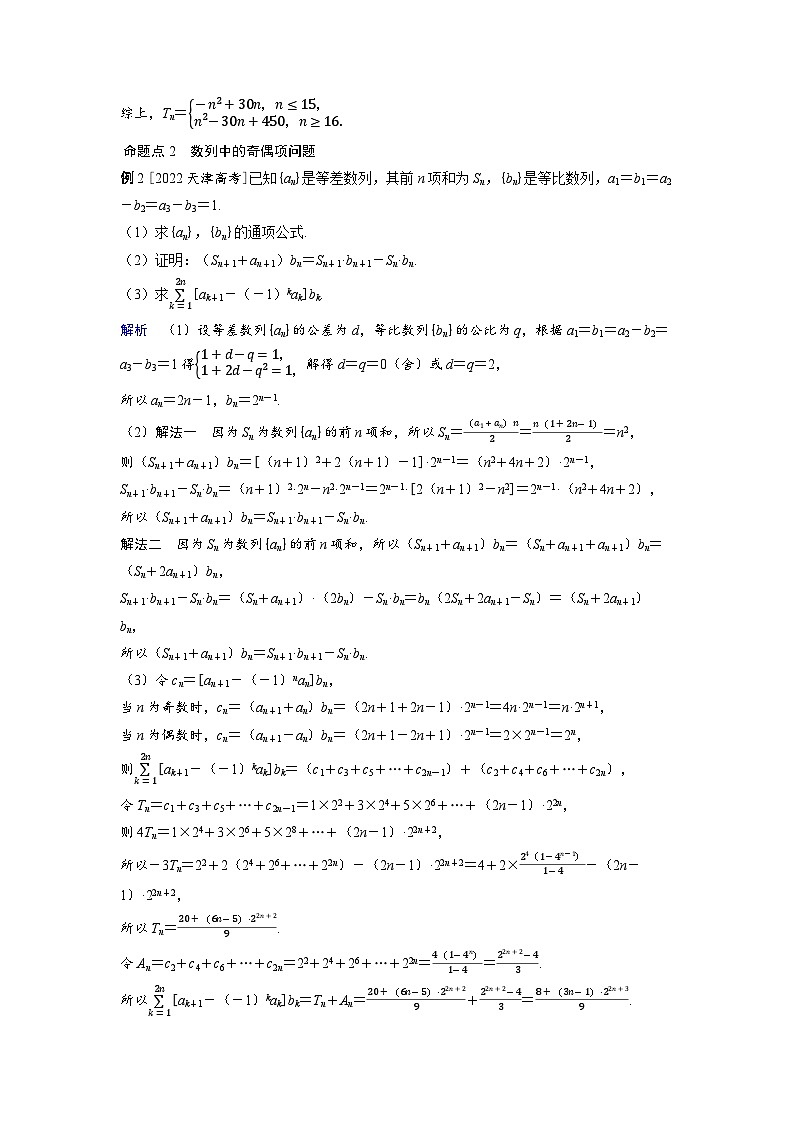 综上，Tn＝{－n²＋30n，n≤15，
n²－30n＋450，n≥16.
命题点2　数列中的奇偶项问题
例2 [2022天津高考]已知{aₙ}是等差数列，其前n项和为Sₙ，{bₙ}是等比数列，a₁＝b₁＝a₂
－b₂＝a₃－b₃＝1.
（1）求{aₙ}，{bₙ}的通项公式.
（2）证明：（Sₙ₊₁＋aₙ₊₁）bₙ＝Sₙ₊₁·bₙ₊₁－Sₙ·bₙ.
（3）求∑_{k＝1}^{2n}[aₖ₊₁－（－1）ᵏaₖ]bₖ.
解析　（1）设等差数列{aₙ}的公差为d，等比数列{bₙ}的公比为q，根据a₁＝b₁＝a₂－b₂＝
a₃－b₃＝1得{1＋d－q＝1，1＋2d－q²＝1，解得d＝q＝0（舍）或d＝q＝2，
所以aₙ＝2n－1，bₙ＝2ⁿ⁻¹.
（2）解法一　因为Sₙ为数列{aₙ}的前n项和，所以Sₙ＝（a₁＋aₙ）n/2＝n（1＋2n－1）/2＝n²，
则（Sₙ₊₁＋aₙ₊₁）bₙ＝[（n＋1）²＋2（n＋1）－1]·2ⁿ⁻¹＝（n²＋4n＋2）·2ⁿ⁻¹，
Sₙ₊₁·bₙ₊₁－Sₙ·bₙ＝（n＋1）²·2ⁿ－n²·2ⁿ⁻¹＝2ⁿ⁻¹·[2（n＋1）²－n²]＝2ⁿ⁻¹·（n²＋4n＋2），
所以（Sₙ₊₁＋aₙ₊₁）bₙ＝Sₙ₊₁·bₙ₊₁－Sₙ·bₙ.
解法二　因为Sₙ为数列{aₙ}的前n项和，所以（Sₙ₊₁＋aₙ₊₁）bₙ＝（Sₙ＋aₙ₊₁＋aₙ₊₁）bₙ＝
（Sₙ＋2aₙ₊₁）bₙ，
Sₙ₊₁·bₙ₊₁－Sₙ·bₙ＝（Sₙ＋aₙ₊₁）·（2bₙ）－Sₙ·bₙ＝bₙ（2Sₙ＋2aₙ₊₁－Sₙ）＝（Sₙ＋2aₙ₊₁）
bₙ，
所以（Sₙ₊₁＋aₙ₊₁）bₙ＝Sₙ₊₁·bₙ₊₁－Sₙ·bₙ.
（3）令cₙ＝[aₙ₊₁－（－1）ⁿaₙ]bₙ，
当n为奇数时，cₙ＝（aₙ₊₁＋aₙ）bₙ＝（2n＋1＋2n－1）·2ⁿ⁻¹＝4n·2ⁿ⁻¹＝n·2ⁿ⁺¹，
当n为偶数时，cₙ＝（aₙ₊₁－aₙ）bₙ＝（2n＋1－2n＋1）·2ⁿ⁻¹＝2×2ⁿ⁻¹＝2ⁿ，
则∑_{k＝1}^{2n}[aₖ₊₁－（－1）ᵏaₖ]bₖ＝（c₁＋c₃＋c₅＋…＋c₂ₙ₋₁）＋（c₂＋c₄＋c₆＋…＋c₂ₙ），
令Tₙ＝c₁＋c₃＋c₅＋…＋c₂ₙ₋₁＝1×2²＋3×2⁴＋5×2⁶＋…＋（2n－1）·2²ⁿ，
则4Tₙ＝1×2⁴＋3×2⁶＋5×2⁸＋…＋（2n－1）·2²ⁿ⁺²，
所以－3Tₙ＝2²＋2（2⁴＋2⁶＋…＋2²ⁿ）－（2n－1）·2²ⁿ⁺²＝4＋2×2⁴（1－4ⁿ⁻¹）/1－4－（2n－
1）·2²ⁿ⁺²，
所以Tₙ＝20＋（6n－5）·2²ⁿ⁺²/9.
令Aₙ＝c₂＋c₄＋c₆＋…＋c₂ₙ＝2²＋2⁴＋2⁶＋…＋2²ⁿ＝4（1－4ⁿ）/1－4＝2²ⁿ⁺²－4/3.
所以∑_{k＝1}^{2n}[aₖ₊₁－（－1）ᵏaₖ]bₖ＝Tₙ＋Aₙ＝20＋（6n－5）·2²ⁿ⁺²/9＋2²ⁿ⁺²－4/3＝8＋（3n－1）·2²ⁿ⁺³/9.